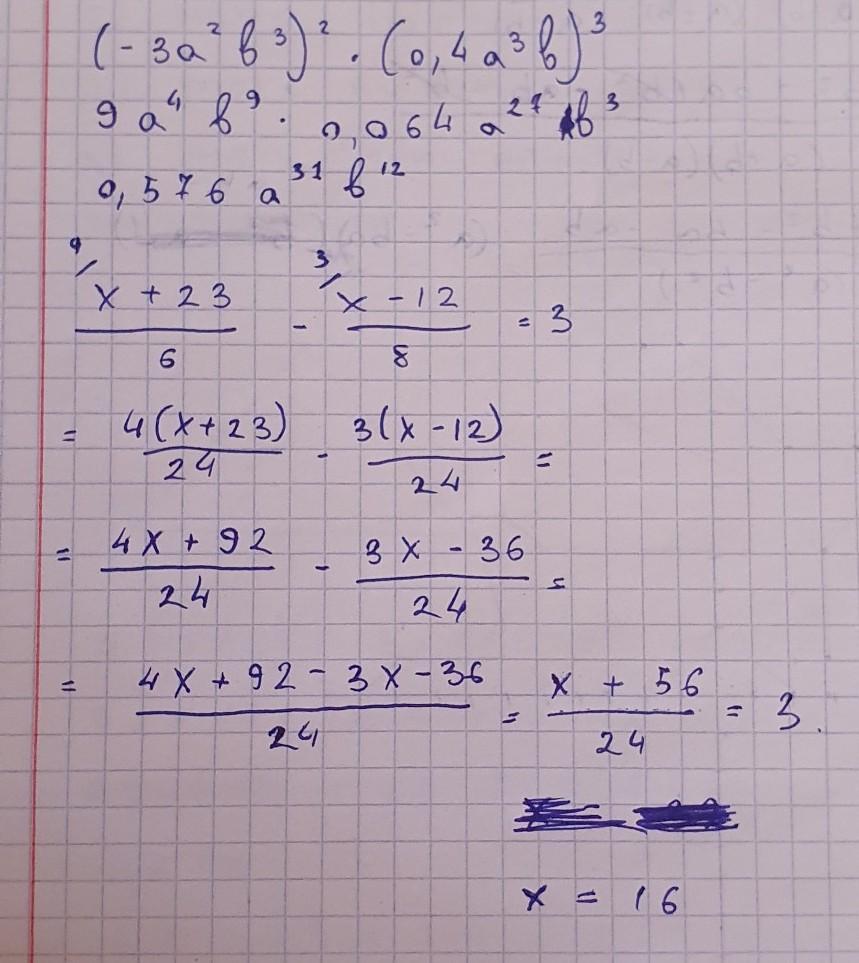 (-3a² b³)² · (0,4a³b)³
9a⁴ b⁹ · 0,064 a²⁷ b³
0,576 a³¹ b¹²
4/ 3/
(x + 23)/6 - (x - 12)/8 = 3
= 4(x+23)/24 - 3(x-12)/24 =
= (4x + 92)/24 - (3x - 36)/24 =
= (4x + 92 - 3x - 36)/24 = (x + 56)/24 = 3.
x = 16